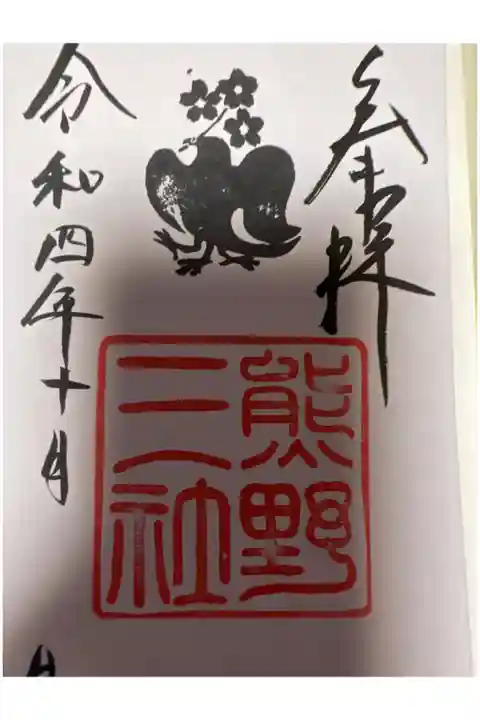 奉拝
熊野
三社
令和四年十月